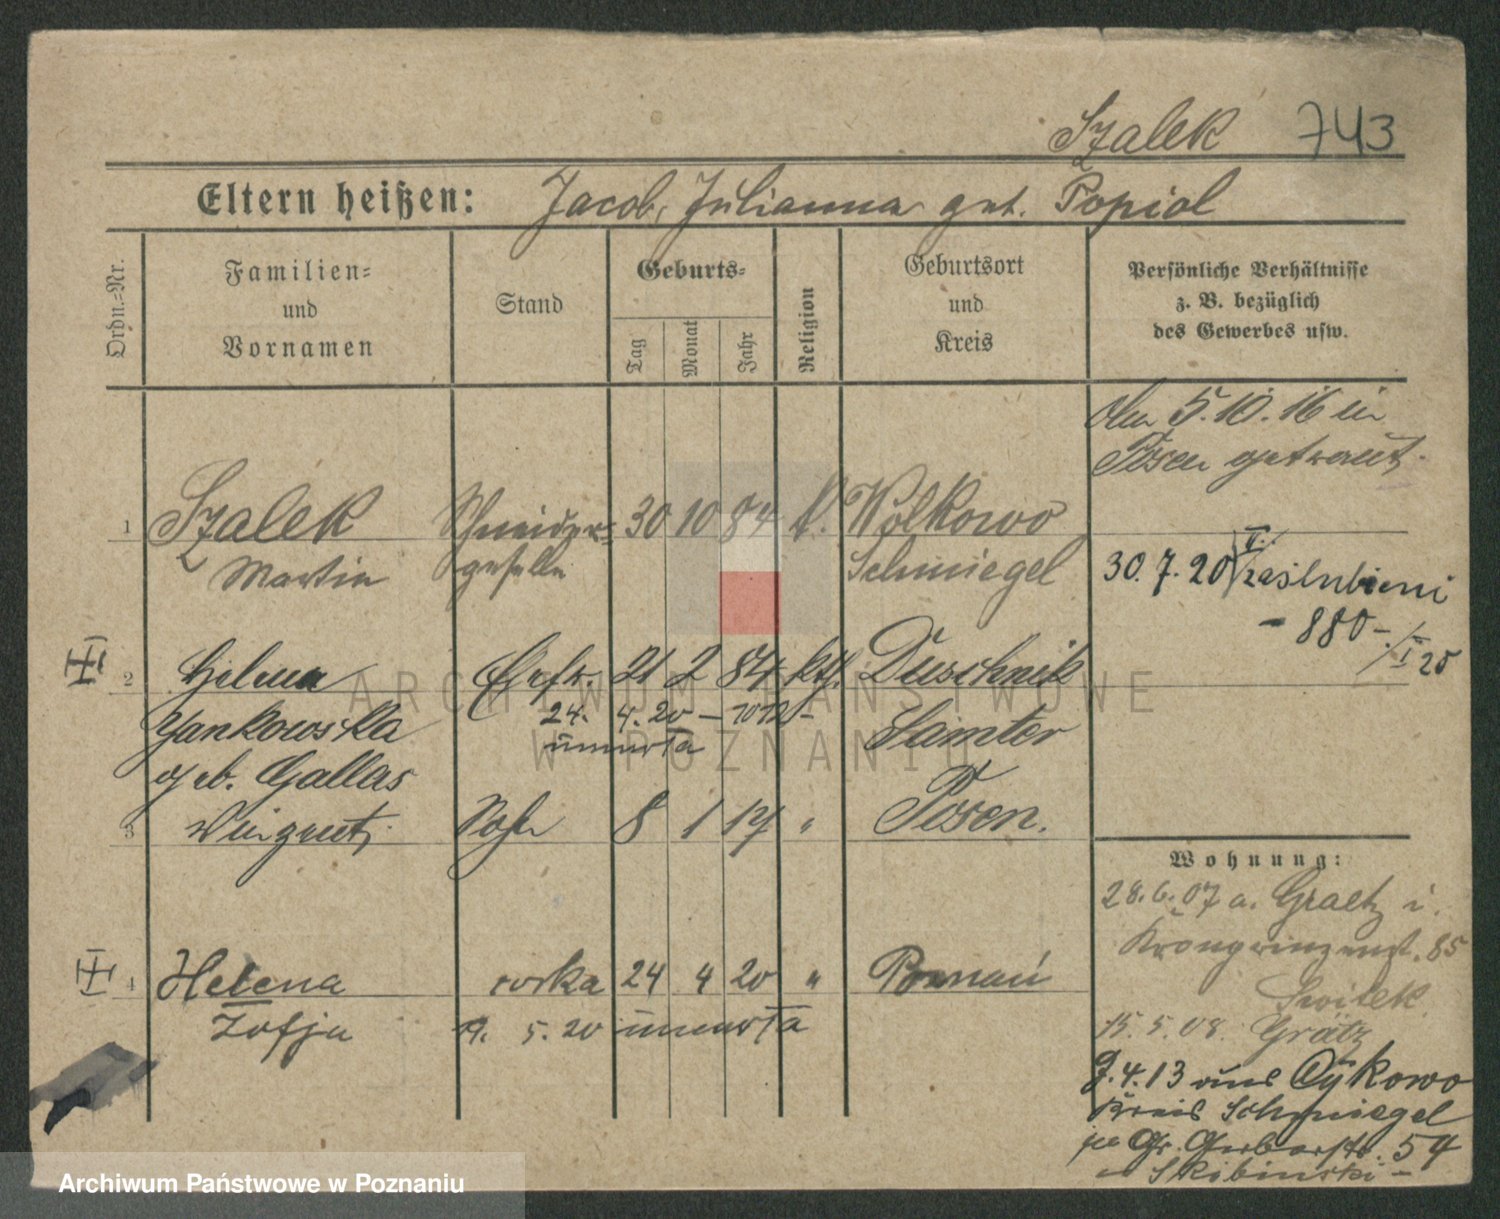 Szalek 743
Eltern heißen: Jacob, Julianna geb. Popiol
Ordn.=Nr.
Familien=
und
Vornamen
Stand
Geburts=
Tag
Monat
Jahr
Religion
Geburtsort
und
Kreis
Persönliche Verhältnisse
z. B. bezüglich
des Gewerbes usw.
Am 5.10.16 in
Posen getraut.
1 Szalek Schneider= 30 10 84 k. Wolkowo
Martin geselle Schmiegel
30.7.20 zaślubieni
- 880 -
20
2 Helena Ehefr. 21 2 84 kth. Duschnik
Jankowska 24. 4. 20 -
umarła
Samter
geb. Gallas
3 Vinzent Sohn 8 1 17 " Posen.
Wohnung:
28.6.07 a. Graetz i.
Kronprinzenst. 85
4 Helena corka 24 4 20 " Poznań
Zofja 5. 20 umarła
15.5.08. Grätz
9.4.13 aus Cykowo
Kreis Schmiegel
Gr. Gerberstr. 54
Skibinski -
ARCHIWUM PAŃSTWOWE
W POZNANIU
Archiwum Państwowe w Poznaniu